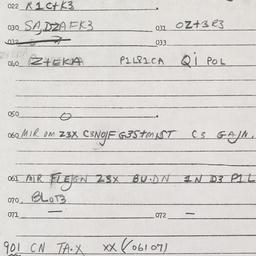 022 R1C+K3
030 SA,DZAFK3 031 OZ+3R3
032 033
040 Z+EKA P1L81CA Qi POL
050 O
060 MIR OM Z3X G3S+MNST C3 GAJA.
061 MIR Z3X BU.DN IN D3 P1L
070 BLOT3
071 — 072 —
901 CN TA.X XX (06107)